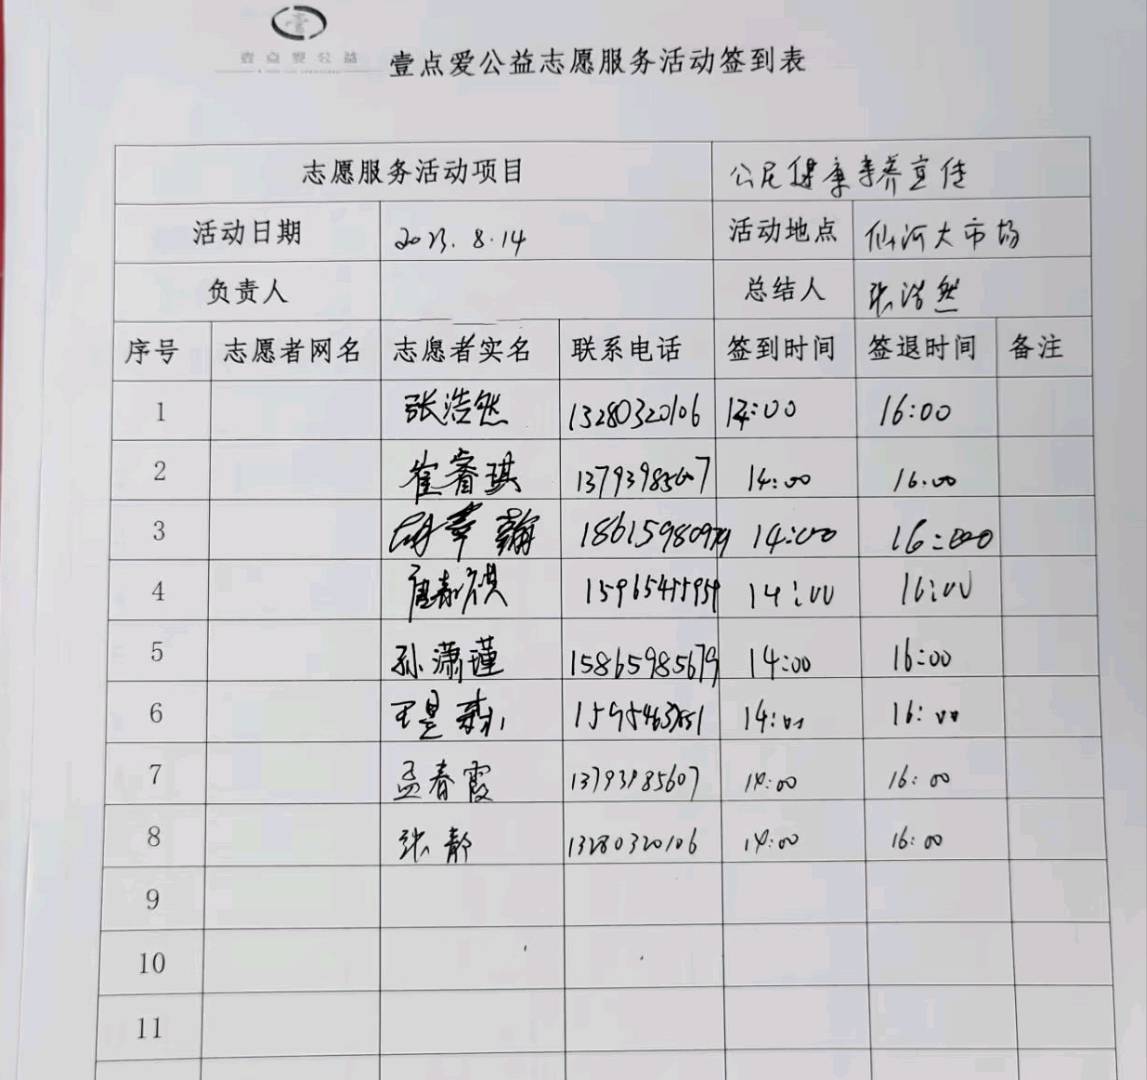 壹点爱公益
壹点爱公益志愿服务活动签到表
志愿服务活动项目 公民健康素养宣传
活动日期 2023.8.14 活动地点 仙河大市场
负责人 总结人 张浩然
序号 志愿者网名 志愿者实名 联系电话 签到时间 签退时间 备注
1 张浩然 13280320106 14:00 16:00
2 崔睿琪 13793985607 14:00 16:00
3 翰 14:00 16:00
4 14:00 16:00
5 孙潇瑾 15865985679 14:00 16:00
6 王昱 14:00 16:00
7 孟春霞 13793985607 14:00 16:00
8 张静 13280320106 14:00 16:00
9
10
11